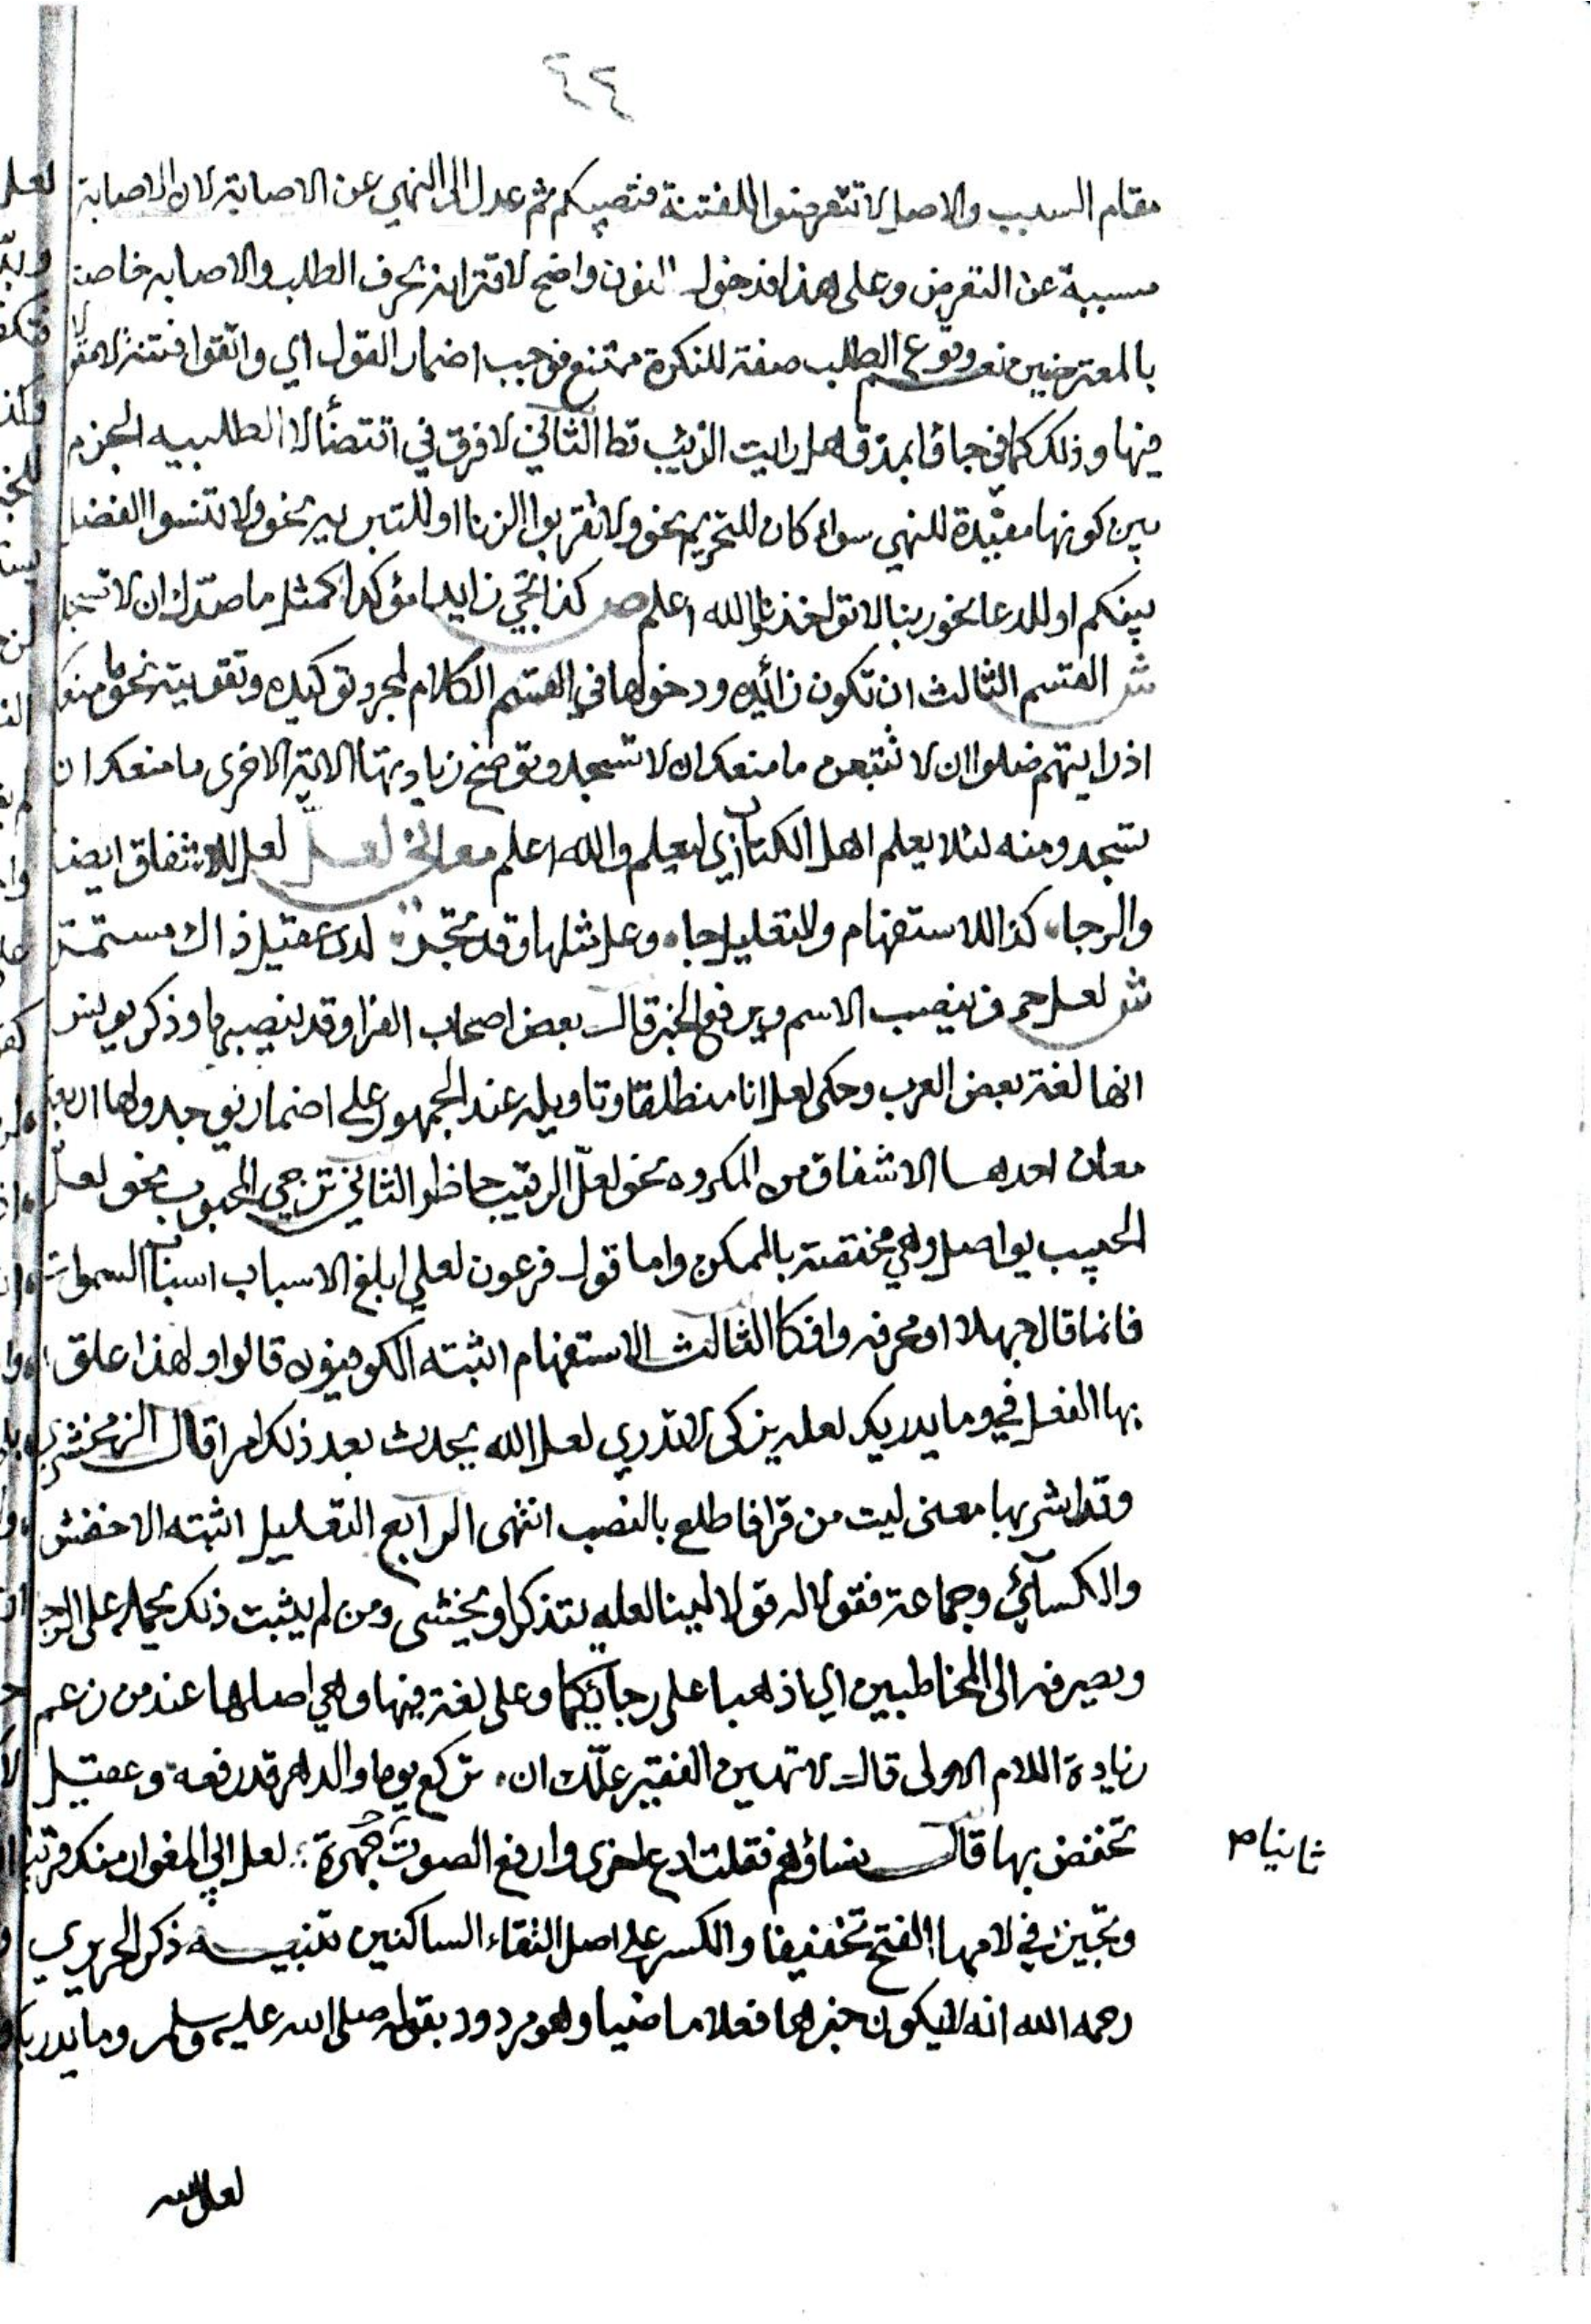 ٤٤
مقام السبب والاصل لا تتعرضوا للفتنة فتصيبكم ثم عدل الى النهي عن الاصابة لان الاصابة
مسببة عن التعرض وعلى هذا فدخول النون واضح لاقترانه بحرف الطلب والاصابه خاصة
بالمتعرضين نعم وقوع الطلب صفة للنكرة ممتنع فوجب اضمار القول اي واتقوا فتنة لا مقولا
فيها وذلك كما في جاؤا بمذق هل رايت الذئب قط الثاني لا فرق في اقتضأ لا الطلبيه الجزم
بين كونها مفيدة للنهي سواء كان للتحريم نحو ولا تقربوا الزنا او للتبر يه نحو ولا تنسوا الفضل
بينكم او للدعا نحو ربنا لا تؤاخذنا والله اعلم ص كذا تجي زايدا مؤكدا كمثل ما صدك ان لا تسجدا
ش القسم الثالث ان تكون زائده ودخولها في القسم الكلام لمجرد توكيده وتقويته نحو ما منعك
اذ رايتهم ضلوا ان لا تتبعن ما منعك ان لا تسجد ويوضح زيادتها الاية الاخرى ما منعك ان
تسجد ومنه لئلا يعلم اهل الكتاب اي ليعلم والله اعلم معاني لعل لعل للاشفاق ايضا
والرجاء كذا للاستفهام ولا تعليل جاء وعل مثلها وقد تجر لدى عقيل ذاك مستمر
ش لعل حرف ينصب الاسم ويرفع الخبر قال بعض اصحاب الفرا وقد ينصبهما وذكر يونس
انها لغة بعض العرب وحكى لعل انا منطلقا وتاويله عند الجمهور على اضمار يوجد ولها اربعة
معان احدها الاشفاق من المكروه نحو لعلّ الرقيب حاظر الثاني ترجي المحبوب نحو لعلّ
الحبيب يواصل وهي مختصة بالممكن واما قول فرعون لعلي ابلغ الاسباب اسباب السموات
فانما قال جهلا او مخرفه وافكا الثالث الاستفهام اثبته الكوفيون قالوا ولهذا علق
بها الفعل في وما يدريك لعله يزكى لا تدري لعل الله يحدث بعد ذلك امرا قال الزمخشري
وقد اشربها معنى ليت من قرا فاطلع بالنصب انتهى الرابع التعليل اثبته الاخفش
والكسائي وجماعة فقولا له قولا لينا لعله يتذكر او يخشى ومن لم يثبت ذلك يحمله على الرجا
ويصرفه الى المخاطبين اي اذهبا على رجائكما وعل لغة فيها وهي اصلها عند من زعم
زيادة اللام الاولى قال لا تهين الفقير علّك ان تركع يوما والدهر قد رفعه وعقيل
تخفض بها قال بناؤهم فقلت ادع اخرى وارفع الصوت جهرة لعل ابي المغوار منك قريب
ثانيا م
وتجيز في لامها الفتح تخفيفا والكسر على اصل التقاء الساكنين تنبيه ذكر الحريري
رحمه الله انه لا يكون خبرها فعلا ماضيا وهو مردود بقوله صلى الله عليه وسلم وما يدريك
لعل الله